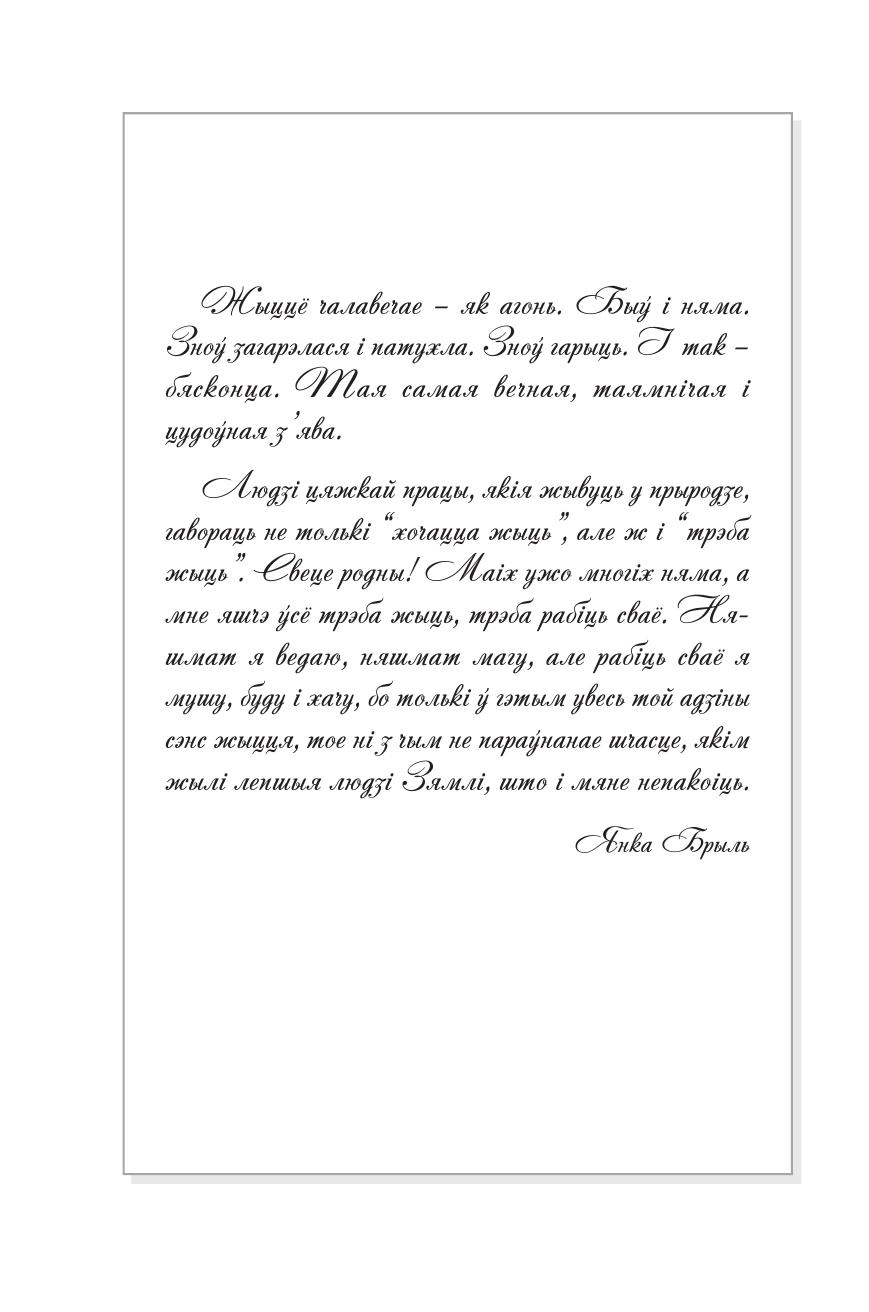 Жыццё чалавечае – як агонь. Быў і няма.
Зноў загарэлася і патухла. Зноў гарыць. І так –
бясконца. Тая самая вечная, таямнічая і
цудоўная з’ява.
Людзі цяжкай працы, якія жывуць у прыродзе,
гавораць не толькі “хочацца жыць”, але ж і “трэба
жыць”. Свеце родны! Маіх ужо многіх няма, а
мне яшчэ ўсё трэба жыць, трэба рабіць сваё. Ня-
шмат я ведаю, няшмат магу, але рабіць сваё я
мушу, буду і хачу, бо толькі ў гэтым увесь той адзіны
сэнс жыцця, тое ні з чым не параўнанае шчасце, якім
жылі лепшыя людзі Зямлі, што і мяне непакоіць.
Янка Брыль